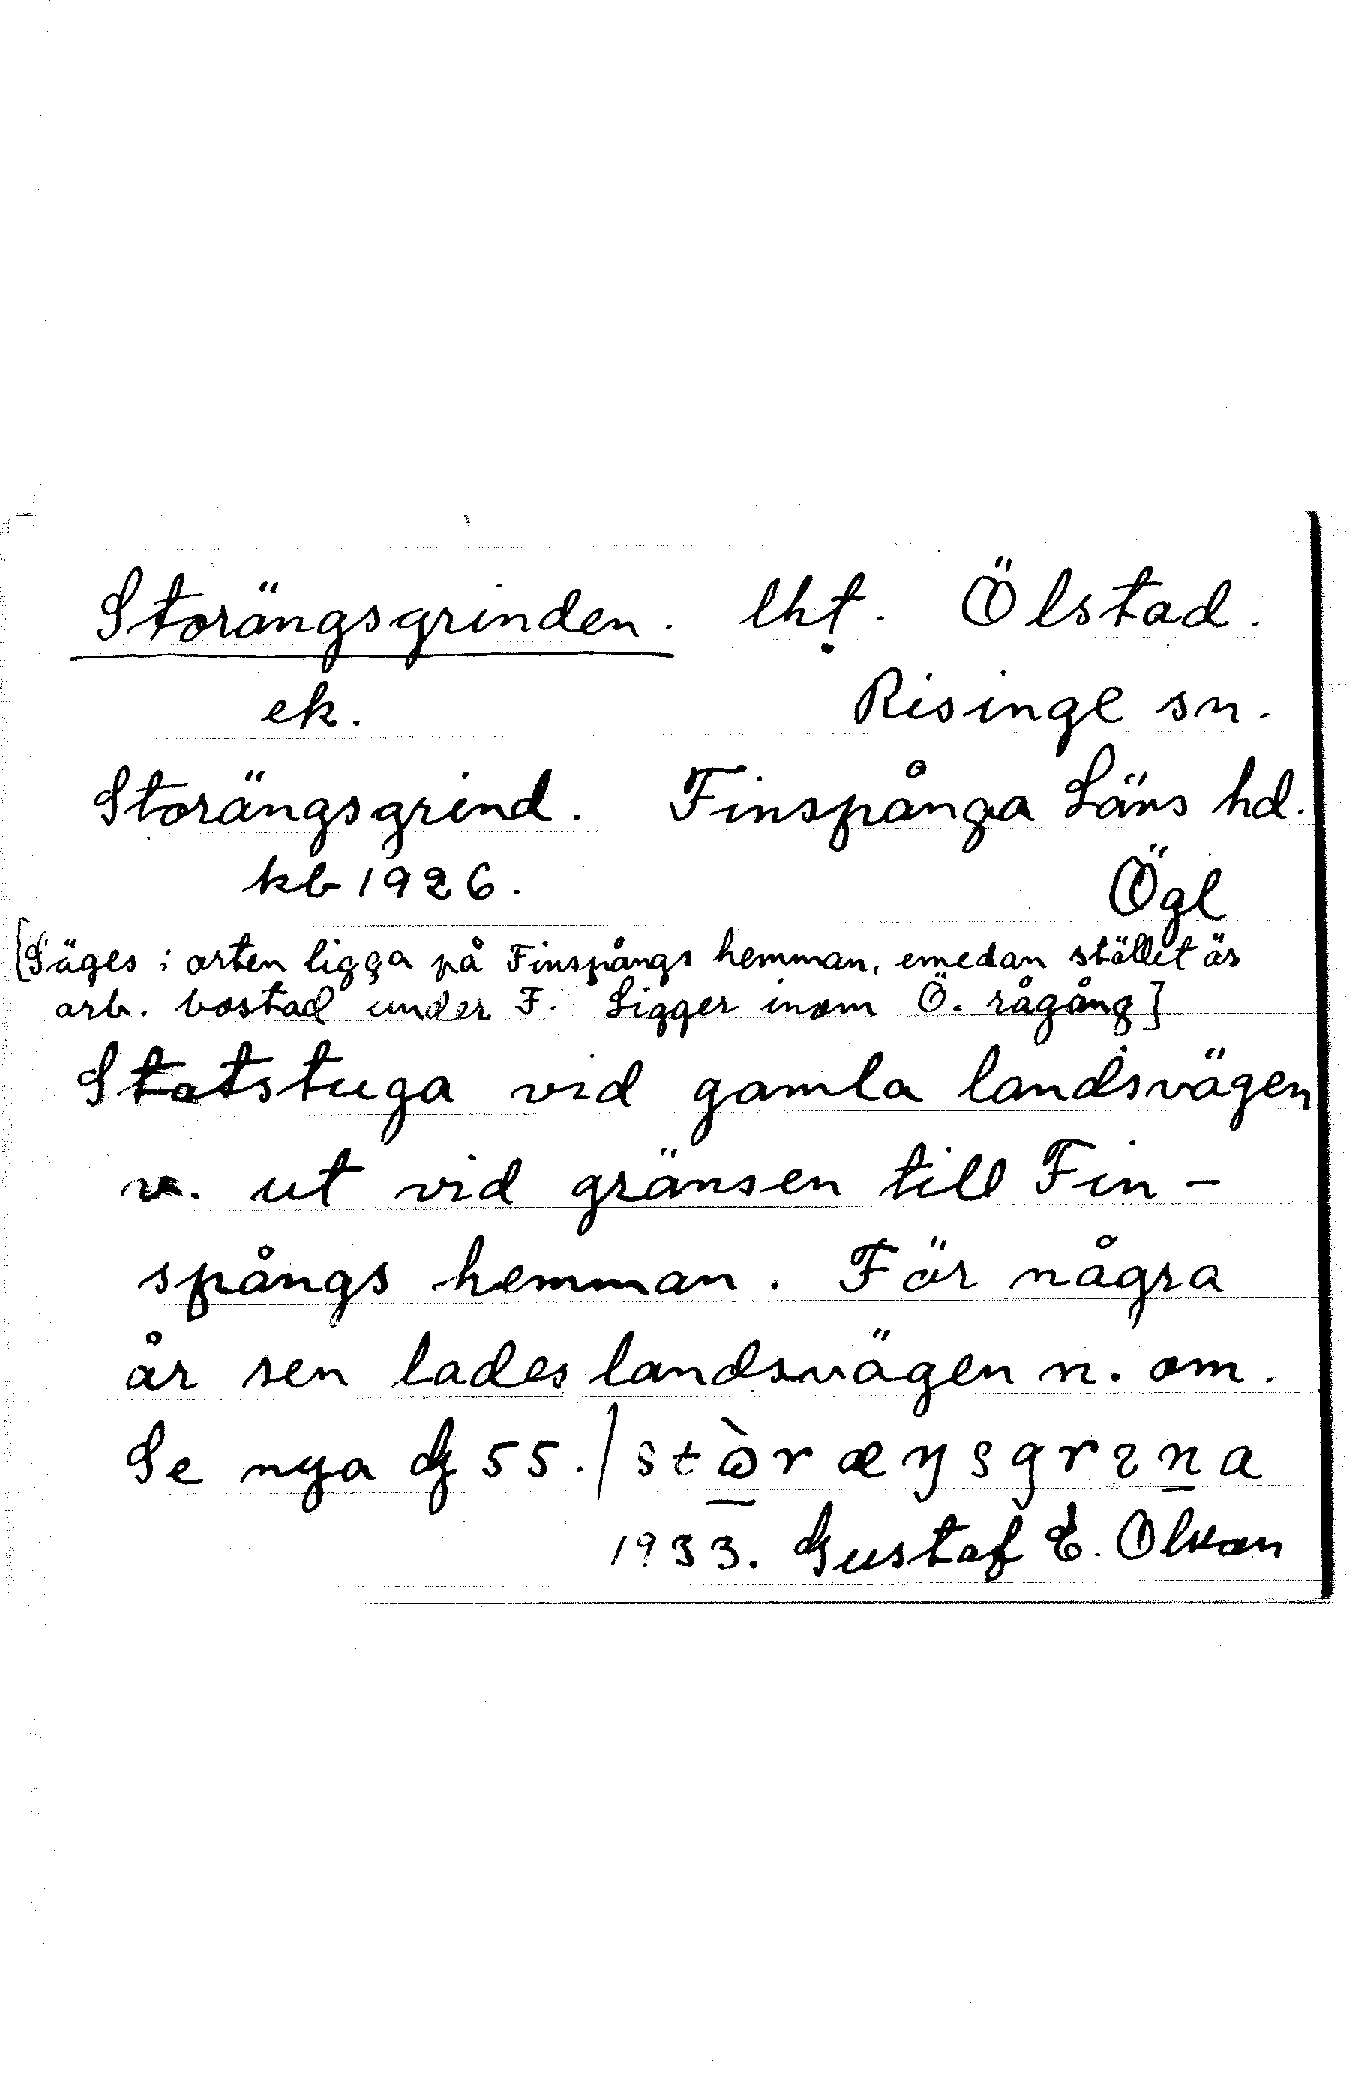 Storängsgrinden. lht. Ölstad.
ek. Risinge sn.
Storängsgrind. Finspånga Läns hd.
kb 1926. Ögl
[Säges i orten ligga på Finspångs hemman, emedan stället är
arb. bostad under F. Ligger inom Ö. rågång]
Statstuga vid gamla landsvägen
v. ut vid gränsen till Fin-
spångs hemman. För några
år sen lades landsvägen n. om.
Se nya G 55. /
1933. Gustaf E. Olsson